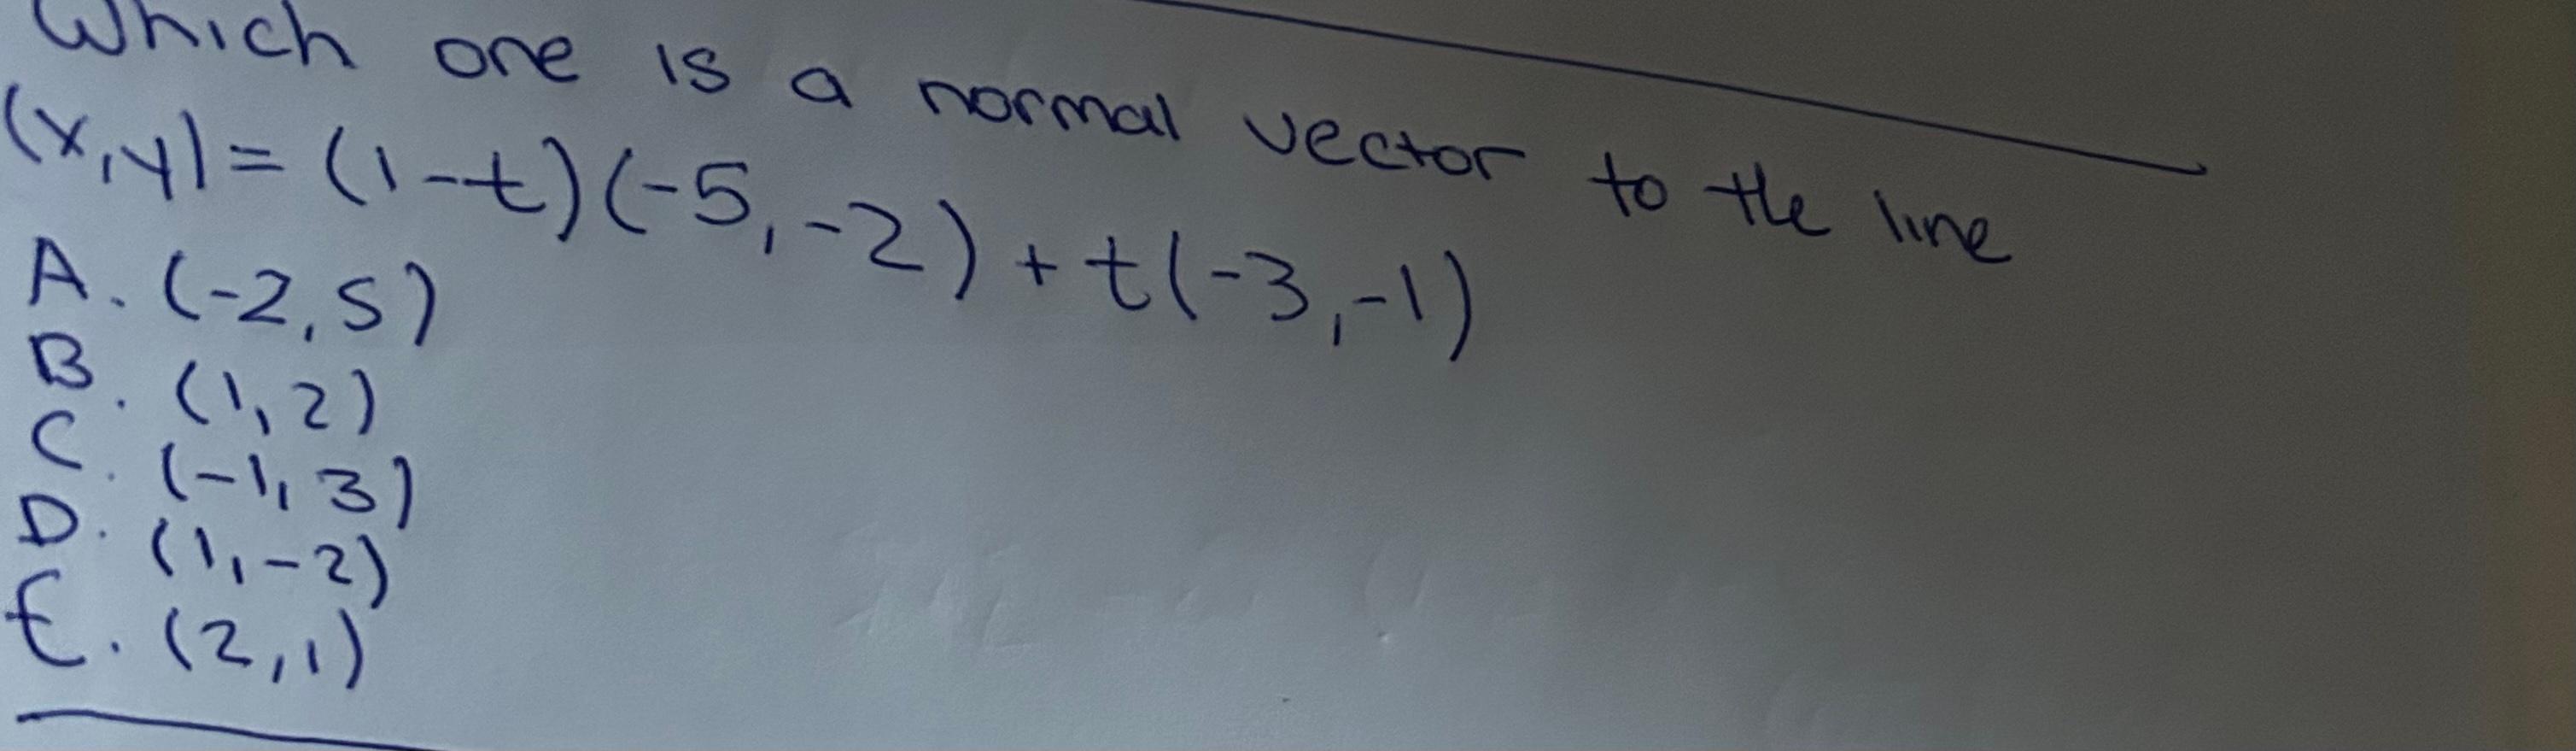 Which one is a normal vector to the line
(x,y) = (1-t)(-5,-2) + t(-3,-1)
A. (-2,5)
B. (1,2)
C. (-1,3)
D. (1,-2)
E. (2,1)